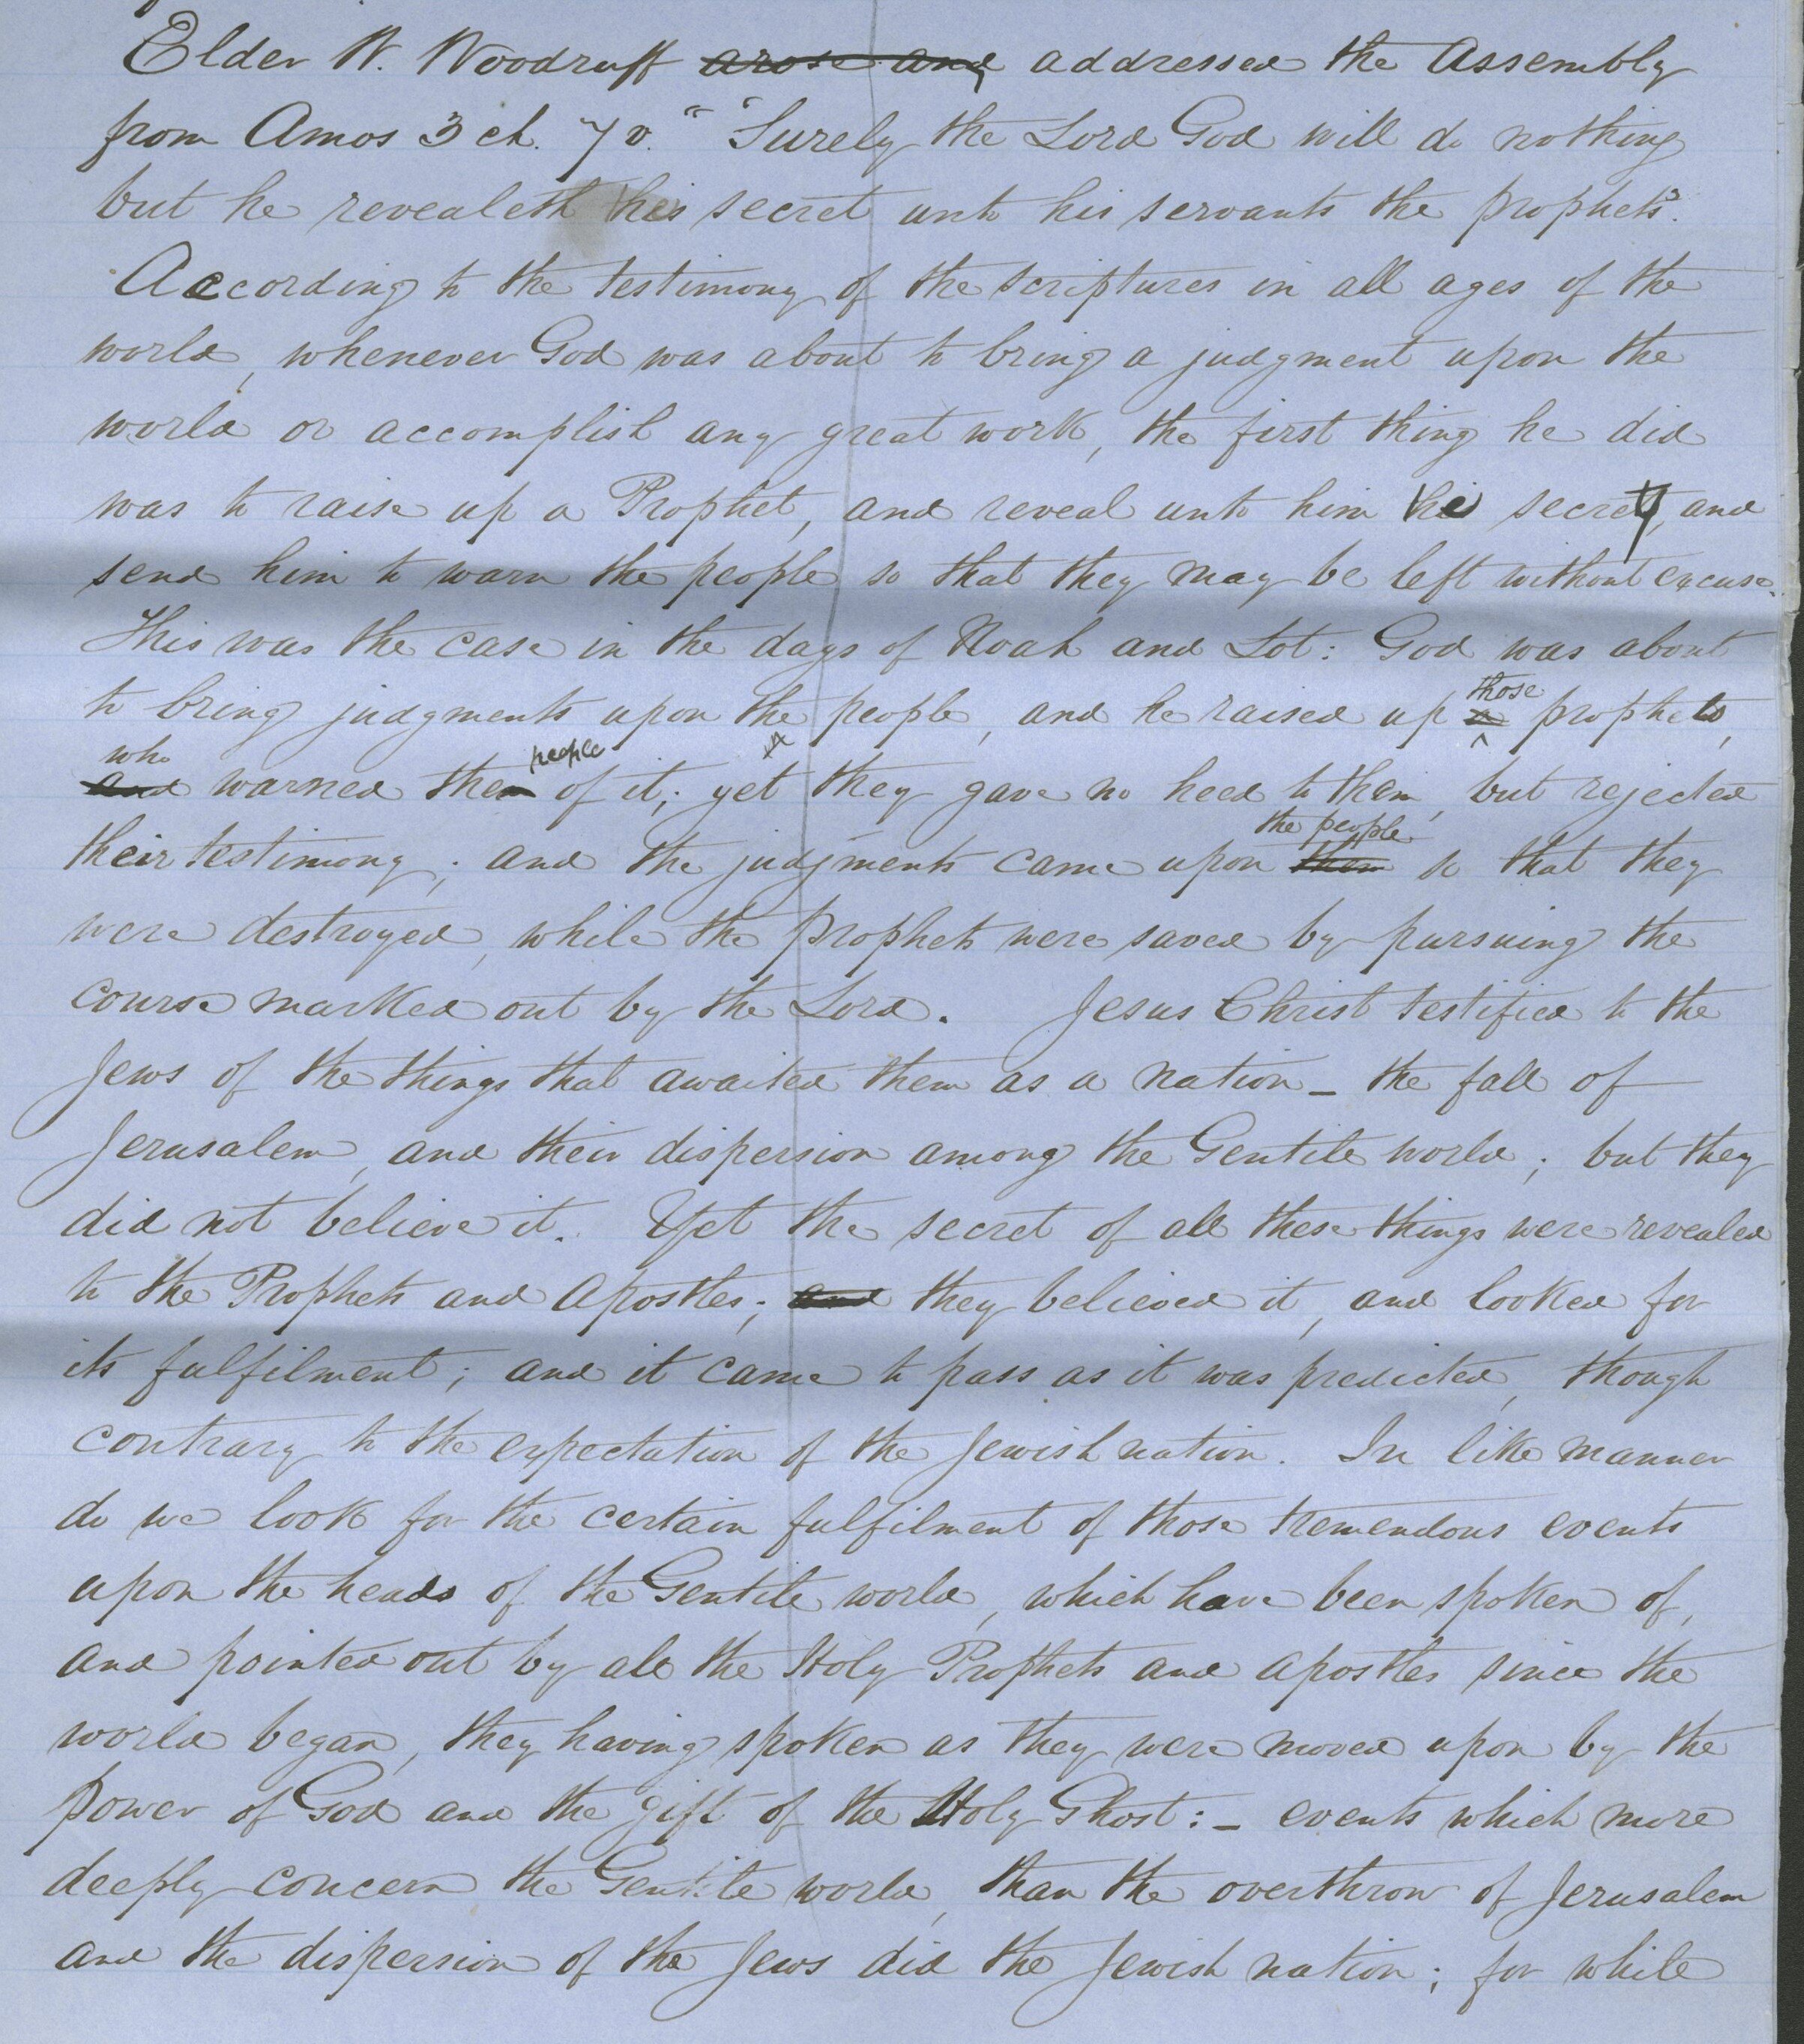 Elder W. Woodruff arose and addressed the Assembly
from Amos 3 ch. 7 v. "Surely the Lord God will do nothing
but he revealeth his secret unto his servants the prophets".
According to the testimony of the scriptures in all ages of the
world, whenever God was about to bring a judgment upon the
world or accomplish any great work, the first thing he did
was to raise up a Prophet, and reveal unto him his secret, and
send him to warn the people so that they may be left without excuse.
This was the case in the days of Noah and Lot: God was about
those
to bring judgments upon the people, and he raised up a prophets,
who people
and warned them of it; yet they gave no heed to them, but rejected
the people
their testimony; and the judgments came upon them so that they
were destroyed, while the prophets were saved by pursuing the
course marked out by the Lord. Jesus Christ testified to the
Jews of the things that awaited them as a nation – the fall of
Jerusalem, and their dispersion among the Gentile world; but they
did not believe it. Yet the secret of all these things were revealed
to the Prophets and Apostles; and they believed it, and looked for
its fulfilment; and it came to pass as it was predicted, though
contrary to the expectation of the Jewish nation. In like manner
do we look for the certain fulfilment of those tremendous events
upon the heads of the Gentile world, which have been spoken of,
and pointed out by all the Holy Prophets and apostles since the
world began, they having spoken as they were moved upon by the
power of God and the gift of the Holy Ghost: – events which more
deeply concern the Gentile world, than the overthrow of Jerusalem
and the dispersion of the Jews did the Jewish nation; for while